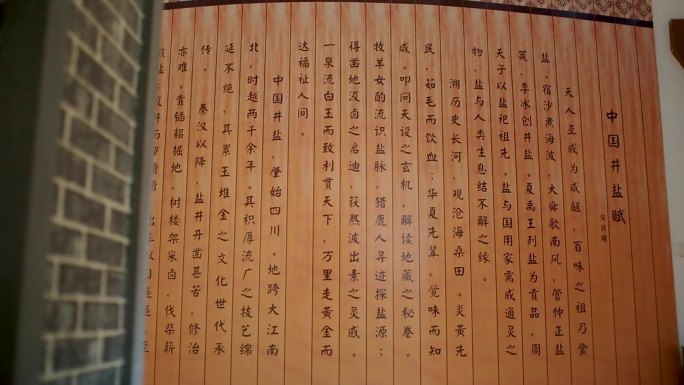 中国井盐赋
宋良曦
天人互成为咸鹾，百味之祖乃食
盐。宿沙煮海波，大舜歌南风，管仲正盐
筴，李冰创井盐。夏禹王列盐为贡品，周
天子以盐祀祖先。盐与国用家需成通灵之
物，盐与人类生息结不解之缘。
溯历史长河，观沧海桑田。炎黄先
民，茹毛而饮血；华夏先辈，觉味而知
咸。叩问天设之玄机，解读地藏之秘卷。
牧羊女酌流识盐脉，猎鹿人寻迹探盐源；
得凿地汲卤之启迪，获熬波出素之灵感。
一泉流白玉而致利贯天下，万里走黄金而
达福祉人间。
中国井盐，肇始四川。地跨大江南
北，时越两千余年。其积厚流广之技艺绵
延不绝，其累玉堆金之文化世代承
传。
秦汉以降，盐井开凿甚苦，修治
亦难。靠锸锄掘地，树楼架采卤，伐柴薪